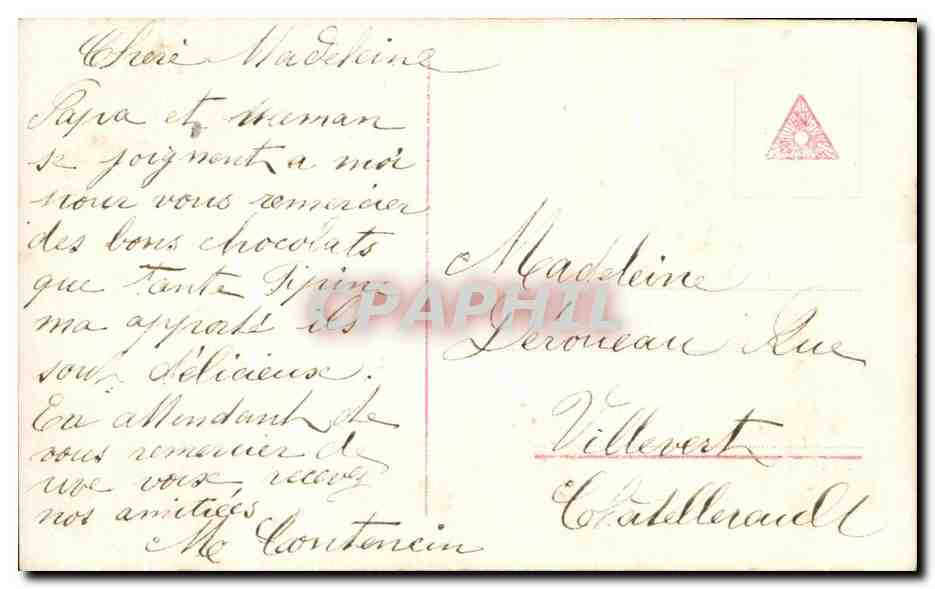 Cherie Madeleine
Papa et maman
se joignent a moi
pour vous remercier
des bons chocolats
que tante Pipine
ma apporté ils
sont délicieux.
En attendant de
vous remercier de
vive voix recevez
nos amitiées
M Contencin
Madeleine
Deroueau Rue
Villevert
Chatellerault
CPAPHIL